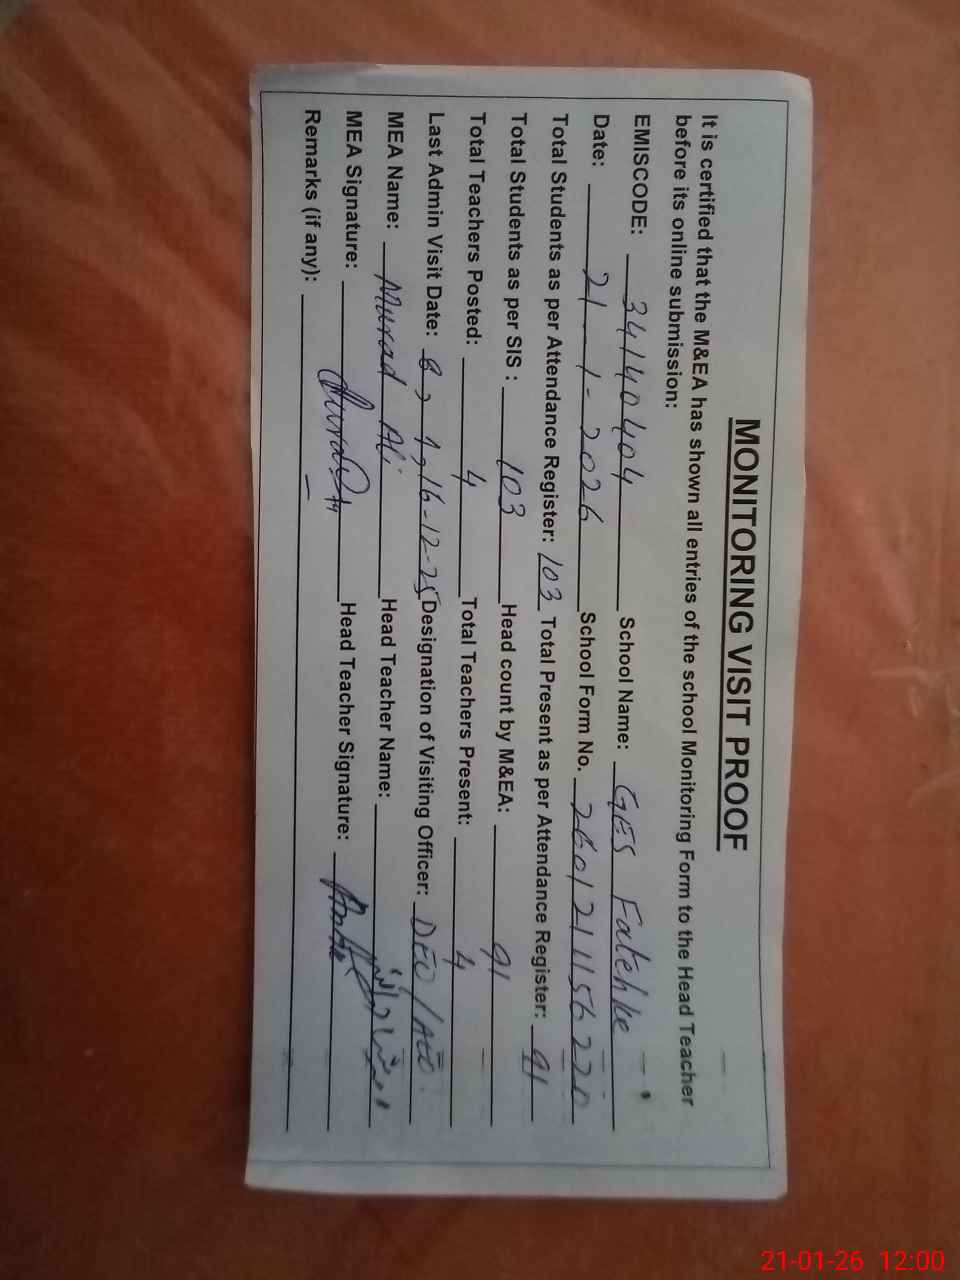 MONITORING VISIT PROOF
It is certified that the M&EA has shown all entries of the school Monitoring Form to the Head Teacher
before its online submission:
EMISCODE: 34140404 School Name: GES Fatehke
Date: 21-1-2026 School Form No. 260121115622
Total Students as per Attendance Register: 103 Total Present as per Attendance Register: 91
Total Students as per SIS : 103 Head count by M&EA: 91
Total Teachers Posted: 4 Total Teachers Present: 4
Last Admin Visit Date: 16-12-25 Designation of Visiting Officer: DEO/AEO
MEA Name: Murad Ali Head Teacher Name:
MEA Signature: Head Teacher Signature:
Remarks (if any): —
21-01-26 12:00